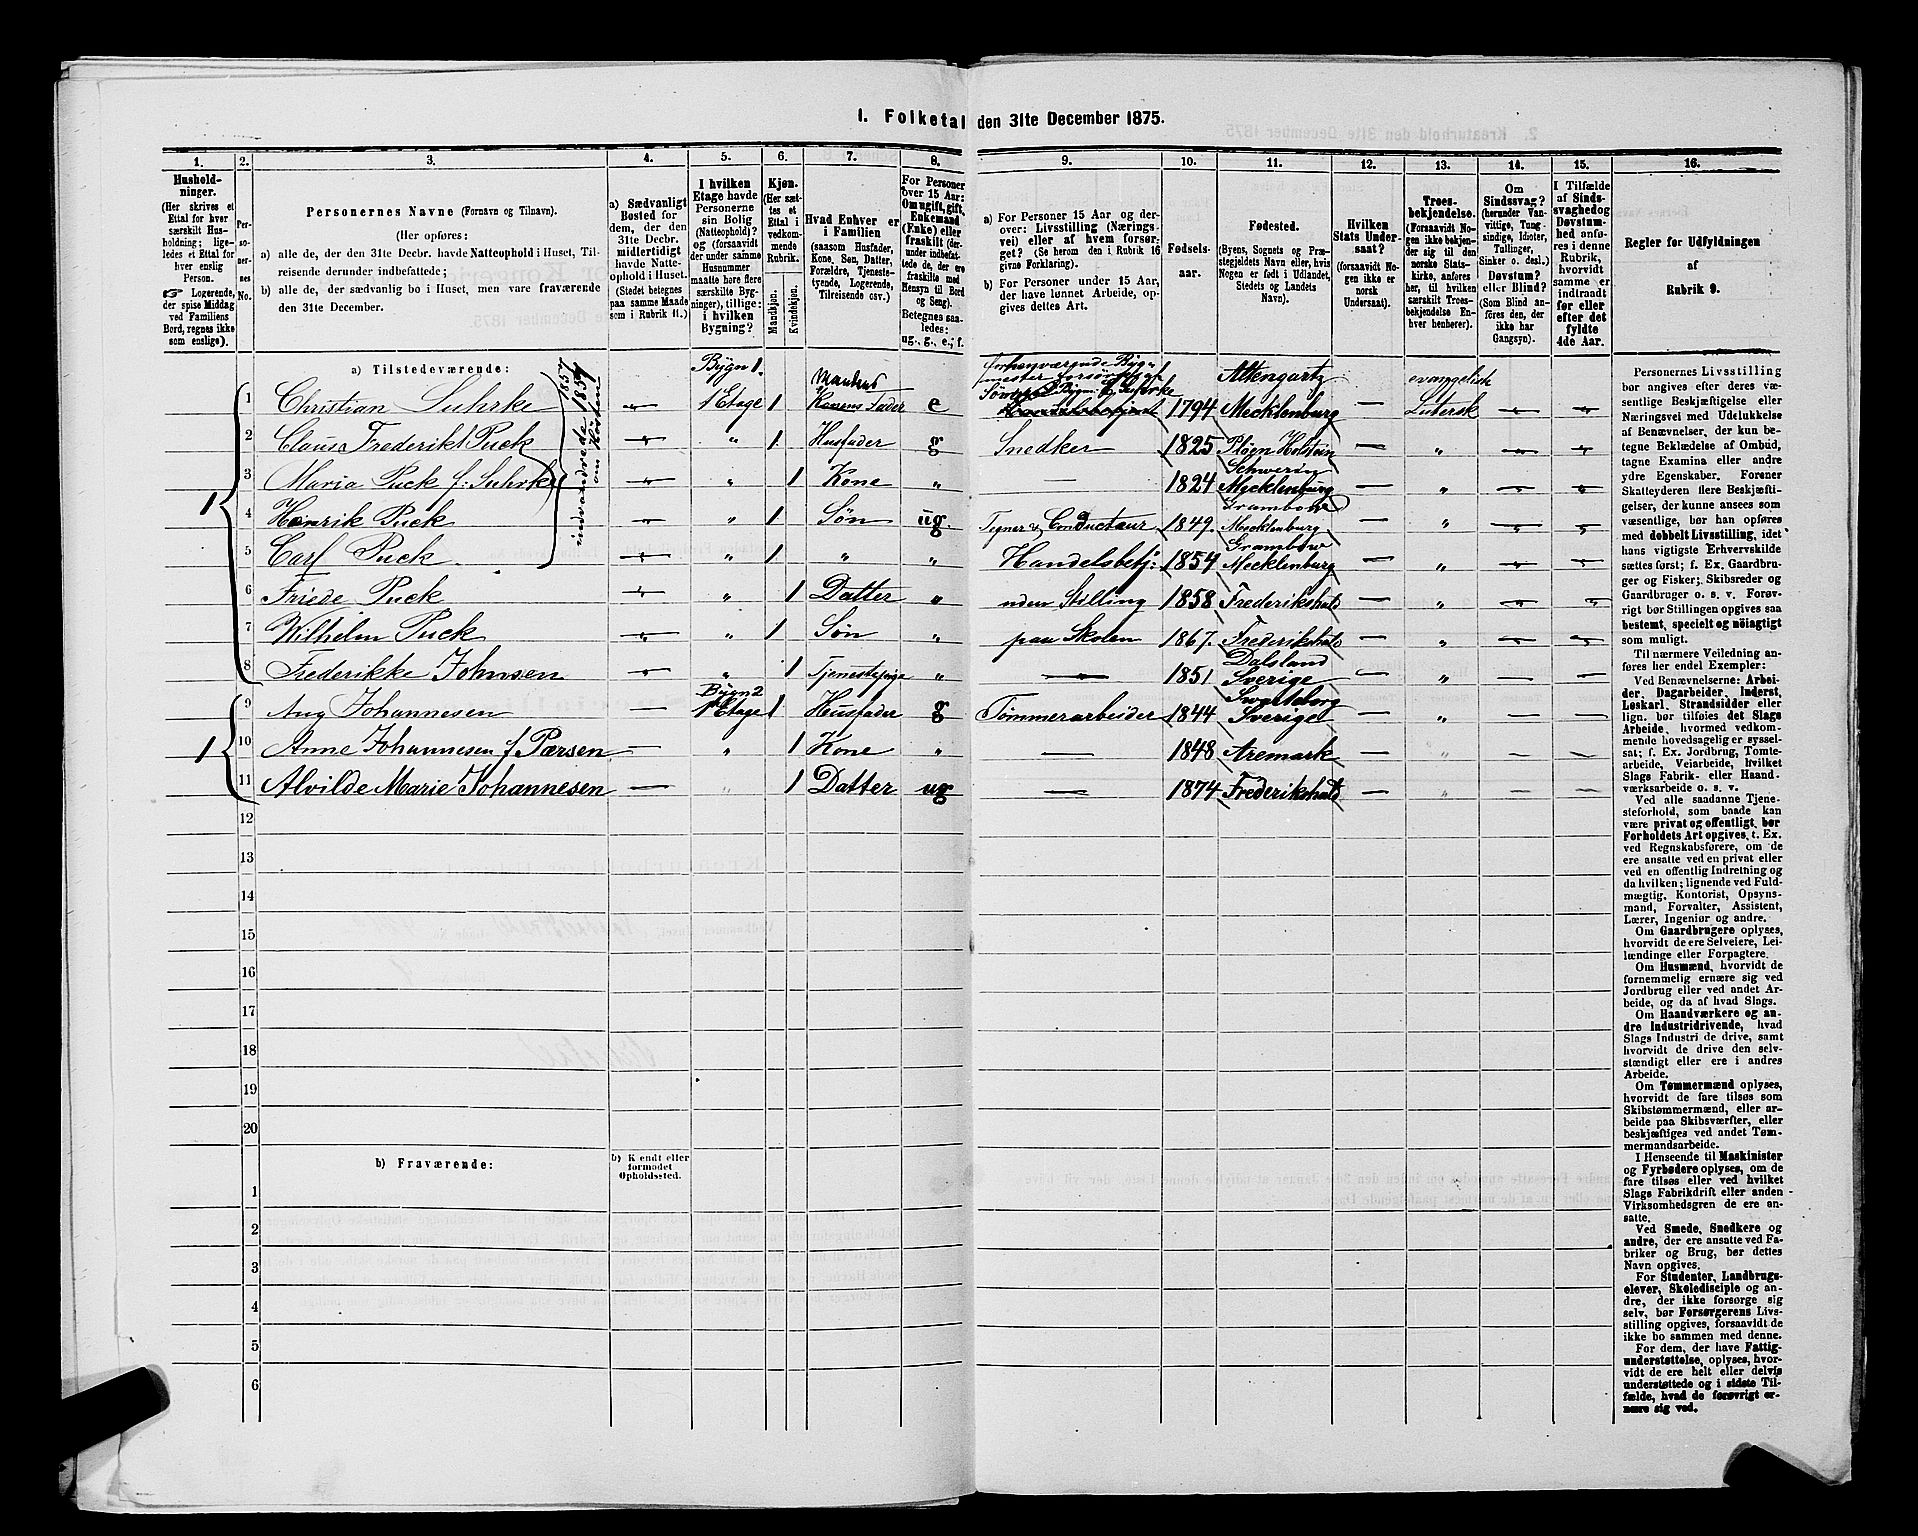 1. Folketal den 31te December 1875.
1. 2. 3. 4. 5. 6. 7. 8. 9. 10. 11. 12. 13. 14. 15. 16.
Hushold-
ninger.
(Her skrives et
Ettal for hver
særskilt Hus-
holdning; lige-
ledes et Ettal
for hver
enslig
Person.
☞ Logerende,
der spise Middag
ved Familiens
Bord, regnes ikke
som enslige).
Per-
so-
ner-
nes
No.
Personernes Navne (Fornavn og Tilnavn).
(Her opføres:
a) alle de, der den 31te Decbr. havde Natteophold i Huset, Til-
reisende derunder indbefattede;
b) alle de, der sædvanlig bo i Huset, men vare fraværende
den 31te December.
a) Sædvanligt
Bosted for
dem, der den
31te Decbr.
midlertidigt
havde Natte-
ophold i Huset.
(Stedet betegnes
paa samme Maade
som i Rubrik 11.)
I hvilken
Etage havde
Personerne
sin Bolig
(Natteophold)?
og (forsaavidt
der under samme
Husnummer
maatte høre flere
særskilte Byg-
ninger), tillige:
i hvilken
Bygning?
Kjøn.
(Her sæt-
tes et
Ettal i
vedkom-
mende
Rubrik.
Mandkjøn.
Kvindekjøn.
Hvad Enhver er
i Familien
(saasom Husfader,
Kone, Søn, Datter,
Forældre, Tjeneste-
tyende, Logerende,
Tilreisende osv.)
For Personer
over 15 Aar:
Om ugift, gift,
Enkemand
(Enke) eller
fraskilt (der-
under indbefat-
tede de, der ere
fraskilte med
Hensyn til Bord
og Seng).
Betegnes saa-
ledes:
ug., g., e.; f.
a) For Personer 15 Aar og der-
over: Livsstilling (Nærings-
vei) eller af hvem forsør-
get? (Se herom den i Rubrik 16
givne Forklaring).
b) For Personer under 15 Aar,
der have lønnet Arbeide, op-
gives dettes Art.
Fødsels-
aar.
Fødested.
(Byens, Sognets og Præ-
stegjeldets Navn eller, hvis
Nogen er født i Udlandet,
Stedets og Landets
Navn).
Hvilken
Stats Under-
saat?
(forsaavidt No-
gen ikke er
norsk
Undersaat).
Troes-
bekjendelse.
(Forsaavidt No-
gen ikke bekjen-
der sig til den
norske Stats-
kirke, anføres
her, til hvilken
særskilt Troes-
bekjendelse En-
hver henhører).
Om
Sindssvag?
(herunder Van-
vittige, Tung-
sindige, Idioter,
Tullinger,
Sinker o. desl.)
Døvstum?
eller Blind?
(Som Blind an-
føres den, der
ikke har
Gangsyn).
I Tilfælde
af Sinds-
svaghed og
Døvstum-
hed anfø-
res i denne
Rubrik,
hvorvidt
samme er
indtraadt
før eller
efter det
fyldte
4de Aar.
Regler for Udfyldningen
af
Rubrik 9.
a) Tilstedeværende:
indvandrede 1857
om Høsten
1 Christian Suhrke " Bygn 1. 1 Etage 1 Mandens Konens Fader e 1794 Altengartz Mecklenburg — evangelisk Lutersk
2 Claus Frederikt Puck " " 1 Husfader g Snedker 1825 Pløen Holstein — "
3 Maria Puck f: Suhrke " " 1 Kone " — 1824 Schwerin Mecklenburg — "
4 Henrik Puck " " 1 Søn ug Tegner & Conducteur 1849. Grambow Mecklenburg — "
5 Carl Puck " " 1 " " Handelsbetj: 1854 Grambow Mecklenburg — "
6 Friede Puck " " 1 Datter " uden Stilling 1858 Frederikshald — "
7 Wilhelm Puck " " 1 Søn " paa Skolen 1867. Frederikshald — "
8 Frederikke Johnsen — " 1 Tjenestepige " — 1851 Dalsland Sverige — "
9 Aug Johannesen Bygn 2 1 Etage 1 Husfader g Tømmerarbeider 1844 Swarteborg Sverige — "
10 Anne Johannesen f Pærsen — " 1 Kone " — 1848 Aremark — "
11 Alvilde Marie Johannesen — " 1 Datter ug — 1874 Frederikshald — "
12
13
14
15
16
17
18
19
20
b) Fraværende:
b) Kendt eller
formodet
Opholdssted.
1
2
3
4
5
6
Personernes Livsstilling
bør angives efter deres væ-
sentlige Beskjæftigelse eller
Næringsvei med Udelukkelse
af Benævnelser, der kun be-
tegne Beklædelse af Ombud,
tagne Examina eller andre
ydre Egenskaber. Forener
Skatteyderen flere Beskjæfti-
gelser, der kunne ansees som
væsentlige, bør han opføres
med dobbelt Livsstilling, idet
hans vigtigste Erhvervskilde
sættes først; f. Ex. Gaardbru-
ger og Fisker; Skibsreder og
Gaardbruger o. s. v. Forøv-
rigt bør Stillingen opgives saa
bestemt, specielt og nöiagtigt
som muligt.
Til nærmere Veiledning an-
føres her endel Exempler:
Ved Benævnelserne: Arbei-
der, Dagarbeider, Inderst,
Løskarl, Strandsidder eller
lign. bør tilføies det Slags
Arbeide, hvormed vedkom-
mende hovedsagelig er syssel-
sat; f. Ex. Jordbrug, Tomte-
arbeide, Veiarbeide, hvilket
Slags Fabrik- eller Haand-
værksarbeide o. s. v.
Ved alle saadanne Tjene-
steforhold, som baade kan
være privat og offentligt, bør
Forholdets Art opgives, t. Ex.
ved Regnskabsførere, om de
ere ansatte ved en privat eller
ved en offentlig Indretning og
da hvilken; lignende ved Fuld-
mægtig, Kontorist, Opsyns-
mand, Forvalter, Assistent,
Lærer, Ingeniør og andre.
Om Gaardbrugere oplyses,
hvorvidt de ere Selveiere, Lei-
lændinge eller Forpagtere.
Om Husmænd, hvorvidt de
fornemmelig ernære sig ved
Jordbrug eller ved andet Ar-
beide, og da af hvad Slags.
Om Haandværkere og an-
dre Industridrivende, hvad
Slags Industri de drive, samt
hvorvidt de drive den selv-
stændigt eller ere i andres
Arbeide.
Om Tømmermænd oplyses,
hvorvidt de fare tilsøs som
Skibstømmermænd, eller ar-
beide paa Skibsværfter, eller
beskjæftiges ved andet Tøm-
mermandsarbeide.
I Henseende til Maskinister
og Fyrbødere oplyses, om de
fare tilsøs eller ved hvilket
Slags Fabrikdrift eller anden
Virksomhedsgren de ere an-
satte.
Ved Smede, Snedkere og
andre, der ere ansatte ved Fa-
briker og Brug, bør dettes
Navn opgives.
For Studenter, Landbrugs-
elever, Skoledisciple og an-
dre, der ikke forsørge sig
selv, bør Forsørgerens Livs-
stilling opgives, forsaavidt de
ikke bo sammen med denne.
For dem, der have Fattig-
understøttelse, oplyses, hvor-
vidt de ere helt eller delvis
understøttede og i sidste Til-
fælde, hvad de forøvrigt er-
nære sig ved.